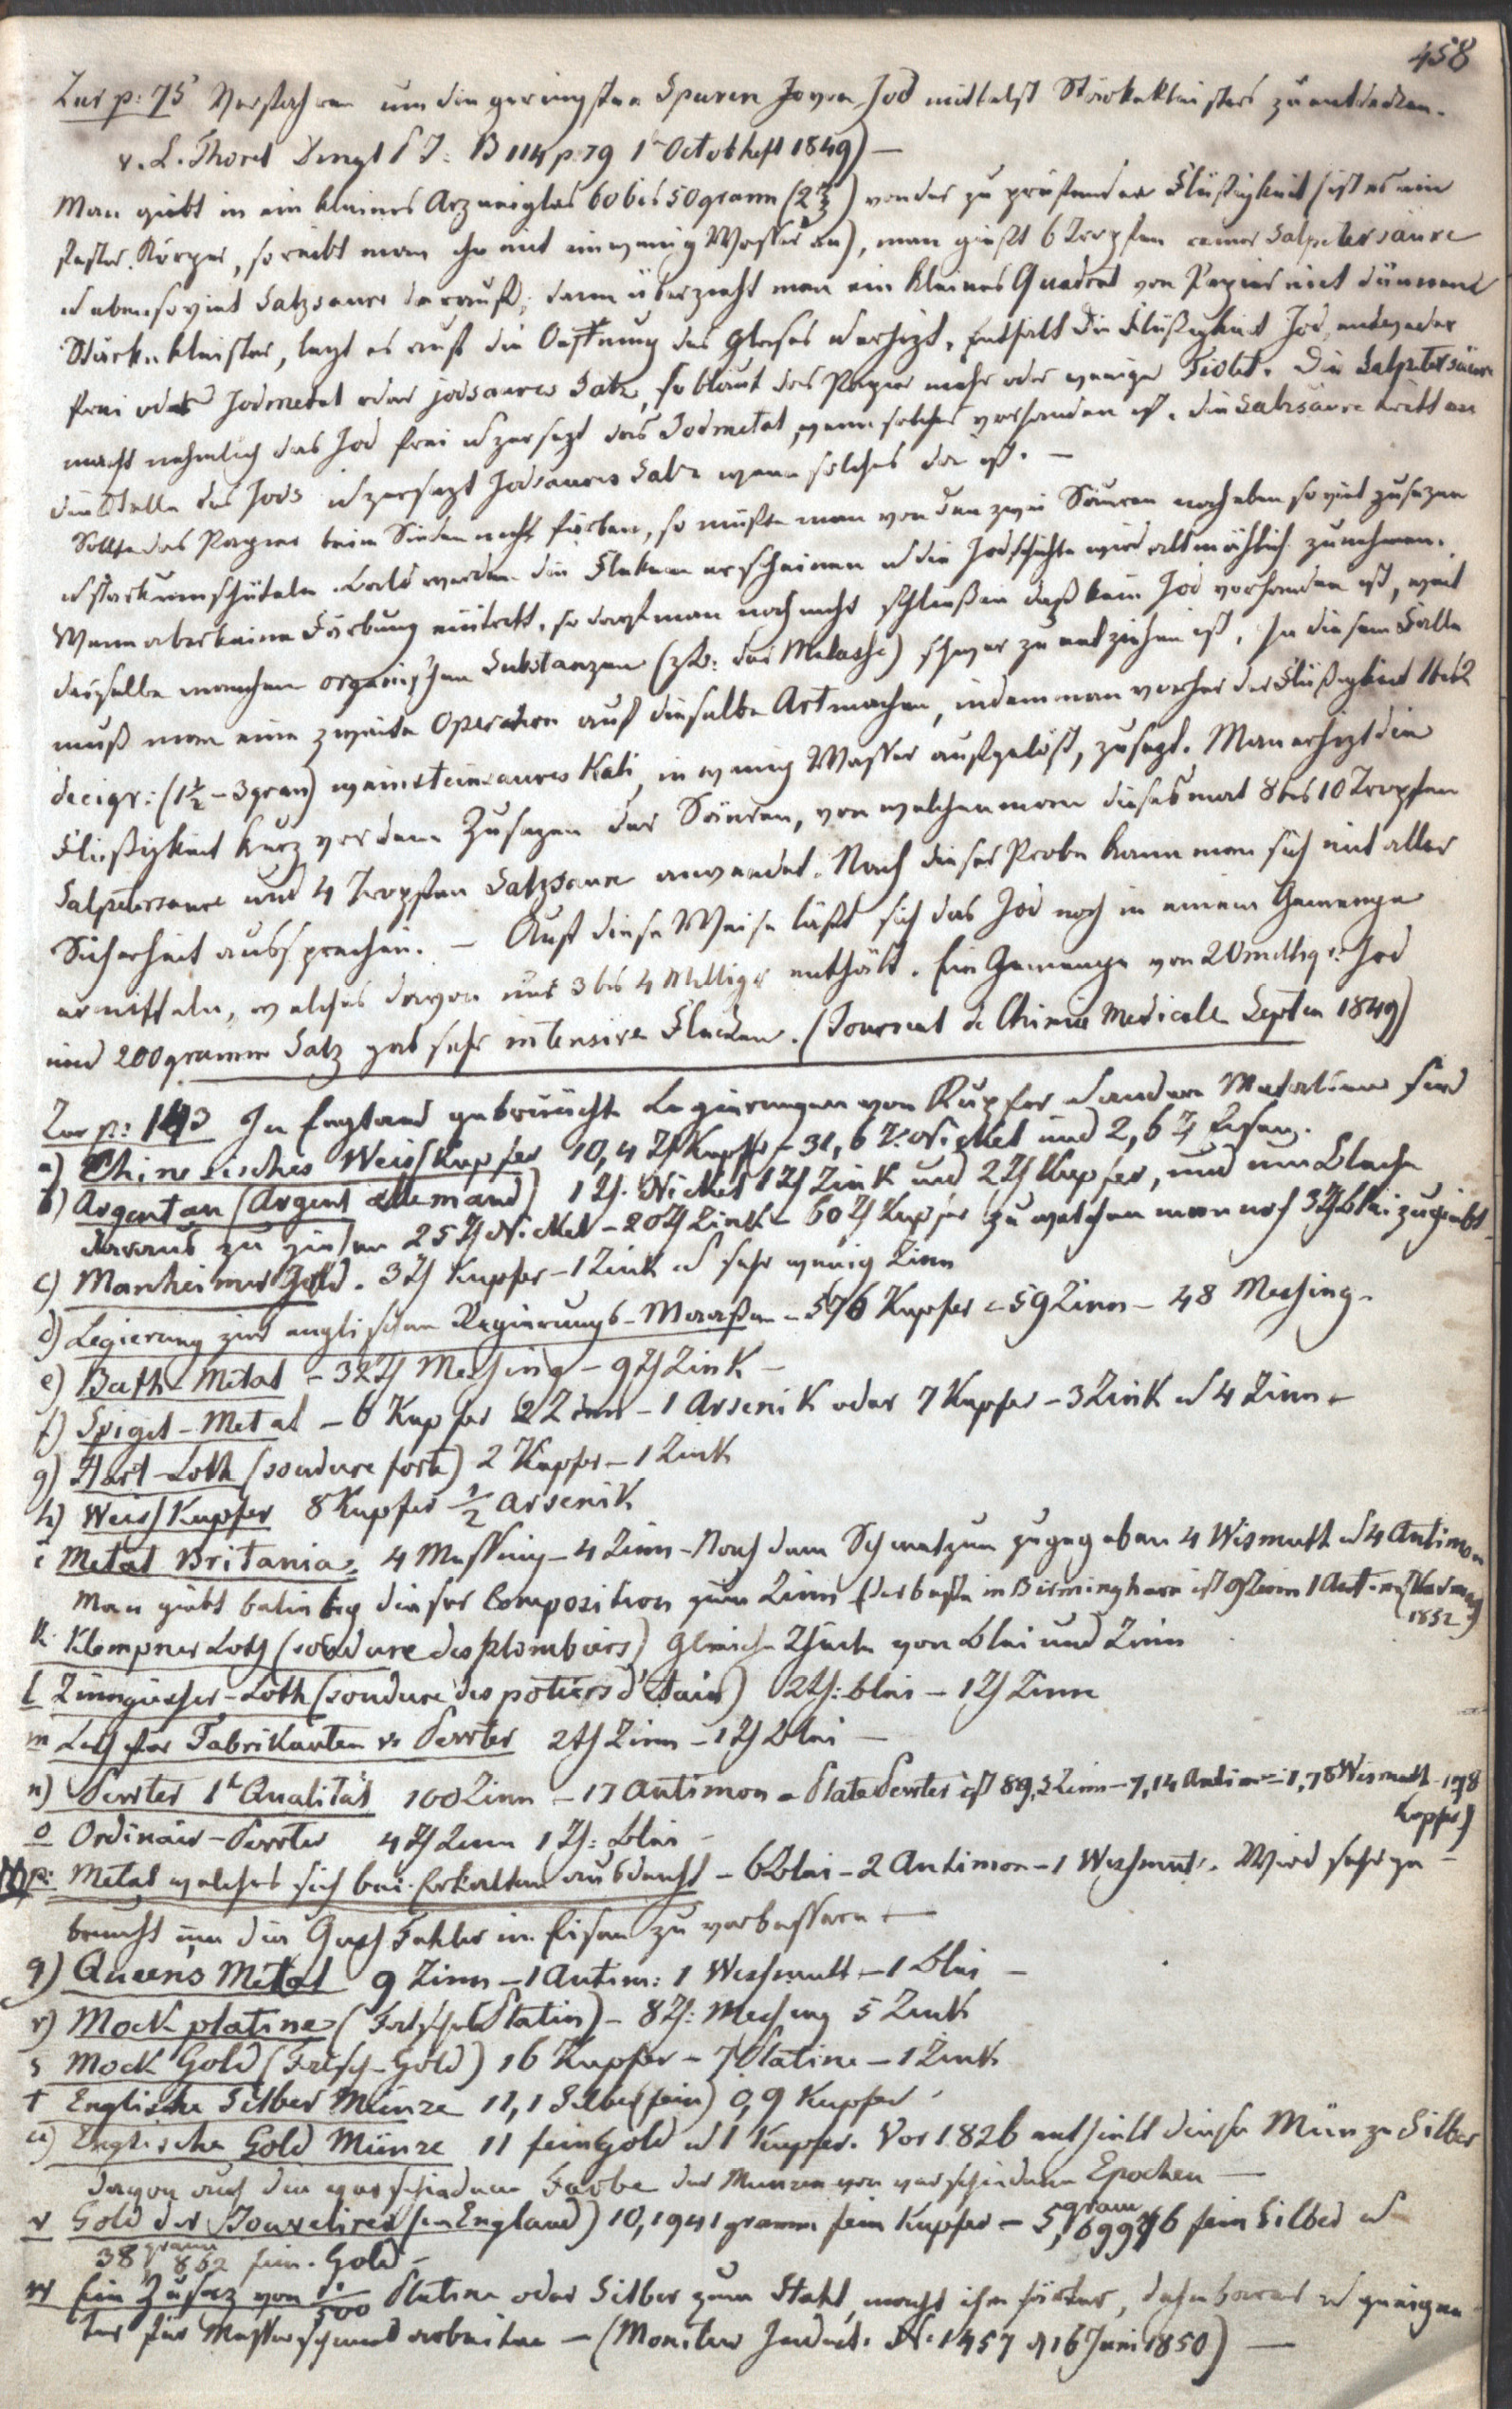 458
Zur p: 75 Verfahren um die geringsten Spuren von Jod mittelst Stärkekleisters zu entdecken.
v. L. Thorel Dingl P J: B 114 p. 79 1t Octobheft 1849) —
Man gießt in ein kleines Arzneiglas 60 bis 50 gramm (2 ℥) von der zu prüfenden Flüßigkeit (ist es ein
fester Körper, so reibt man ihn mit ein wenig Wasser an), man gießt 6 Tropfen reiner Salpetersäure
u ebensoviel Salzsäure darauf; dann überzieht man ein kleines Quadrat von Papier mit dünnem
Stärkekleister, legt es auf die Oeffnung des Glases u erhizt. Enthält die Flüßigkeit Jod, entweder
frei oder Jodmetal oder jodsaures Salz, so blaut das Papier mehr oder weniger Violet. Die Salpetersäure
macht nehmlich das Jod frei u zersezt das Jodmetal, wenn solches vorhanden ist. die Salzsäure tritt an
die Stelle des Jods u zersezt Jodsaures Salz wenn solches da ist. —
Sollte das Papier beim Sieden nicht färben, so müßte man von den zwei Säuren noch eben so viel zusezen
u stark umschüteln. bald werden die Fleken erscheinen u die Jodschichte wird allmählich zunehmen.
Wenn aber keine Färbung eintritt, so darf man noch nicht schließen daß kein Jod vorhanden ist, weil
dasselbe manchen organischen Substanzen (zB: der Melasse) schwer zu entziehen ist. In diesem Falle
muß man eine zweite Operation auf dieselbe Art machen, indem man vorher der Flüßigkeit 1 bis 2
decigr: (1½ - 3 gran) weinsteinsaures Kali, in wenig Wasser aufgelöst, zusezt. Man erhizt die
Flüßigkeit kurz vor dem Zusezen der Säuren, von welchen man dieses mal 8 bis 10 Tropfen
Salpetersäure und 4 Tropfen Salzsäure anwendet. Nach dieser Probe kann man sich mit aller
Sicherheit aussprechen. — Auf diese Weise läßt sich das Jod noch in einem Gemenge
ermitteln, welches davon nur 3 bis 4 Milligr enthält. Ein Gemenge von 20 milligr: Jod
und 200 gramme Salz gab sehr intensive Flecken. (Journal de Chimie Medicale Septem 1849)
Zur p: 143 In England gebräuchte Legierungen von Kupfer u andern Metallen sind
a) Chinesisches Weisskupfer 10,4 Th Kupfer - 31,6 Th Nickel und 2,6 Th Eisen.
b) Argentan (Argent allemand) 1 Th. Nickel 1 Th Zink und 2 Th Kupfer, und um Bleche
daraus zu ziehen 25 Th Nickel - 20 Th Zink - 60 Th Kupfer zu welchen man noch 3 Th Blei zugiebt
c) Manheimer Gold. 3 Th Kupfer - 1 Zink u sehr wenig Zinn
d) Legierung zu englischen Regierungs-Maaßen - 576 Kupfer - 59 Zinn - 48 Messing.
e) Bath-Metal - 32 Th Messing - 9 Th Zink -
f) Spigel-Metal - 6 Kupfer 2 Zinn - 1 Arsenik oder 7 Kupfer - 3 Zink u 4 Zinn -
g) Hart-Loth (soudure forte) 2 Kupfer - 1 Zink
h) Weiss Kupfer 8 Kupfer ½ Arsenik
i Metal Britania: 4 Messing - 4 Zinn - Nach dem Schmelzen zugegeben 4 Wismuth u 4 Antimon
Man giebt beliebig dieser Composition zum Zinn (das beste in Birmingham ist 9 Zinn 1 Antimon
1832)
k Klempner Loth (soudure des plombiers) Gleiche Theile von Blei und Zinn
l Zinngiesser-Loth (soudure des potiers d'étain) 2 Th: Blei - 1 Th Zinn
m Loth für Fabrikanten v. Pewter 2 Th Zinn - 1 Th Blei —
n) Pewter 1t Qualität 100 Zinn - 17 Antimon - Plate Pewter ist 89,3 Zinn - 7,14 Antim - 1,78 Wismuth - 1,78
Kupfer)
o Ordinäir-Pewter 4 Th Zinn 1 Th: Blei -
p: Metal welches sich bei Erkalten ausdehnt - 6 Blei - 2 Antimon - 1 Wissmut. Wird sehr ge-
braucht um die Guss Fehler im Eisen zu verbessern —
q) Queens Metal 9 Zinn - 1 Antim: 1 Wissmuth - 1 Blei -
r) Mock platine (Falsches Platin) - 8 Th: Messing 5 Zink
s Mock Gold (Falsch-Gold) 16 Kupfer - 7 Platine - 1 Zink
t Englische Silber Münze 11,1 Silber (fein) 0,9 Kupfer
u) Englische Gold Münze 11 fein Gold u 1 Kupfer. Vor 1826 enthielt diese Münze Silber
davon auch die verschiedene Farbe der Münzen von verschiedenen Epochen —
v Gold der Jouveliers (in England) 10,1941 gramm fein Kupfer - 5,gram 69976 fein Silber u
38 gramm 862 fein. Gold -
w Ein Zusaz von 1/500 Platine oder Silber zum Stahl, macht ihn härter, dehnbarer u geeigne-
ter für Messerschmied arbeiten — (Moniteur Industr. N. 1457 d 16 Juni 1850) —